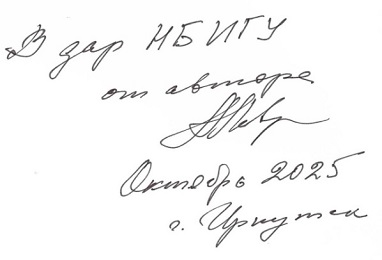 В дар НБ ИГУ
от автора
Октябрь 2025
г. Иркутск